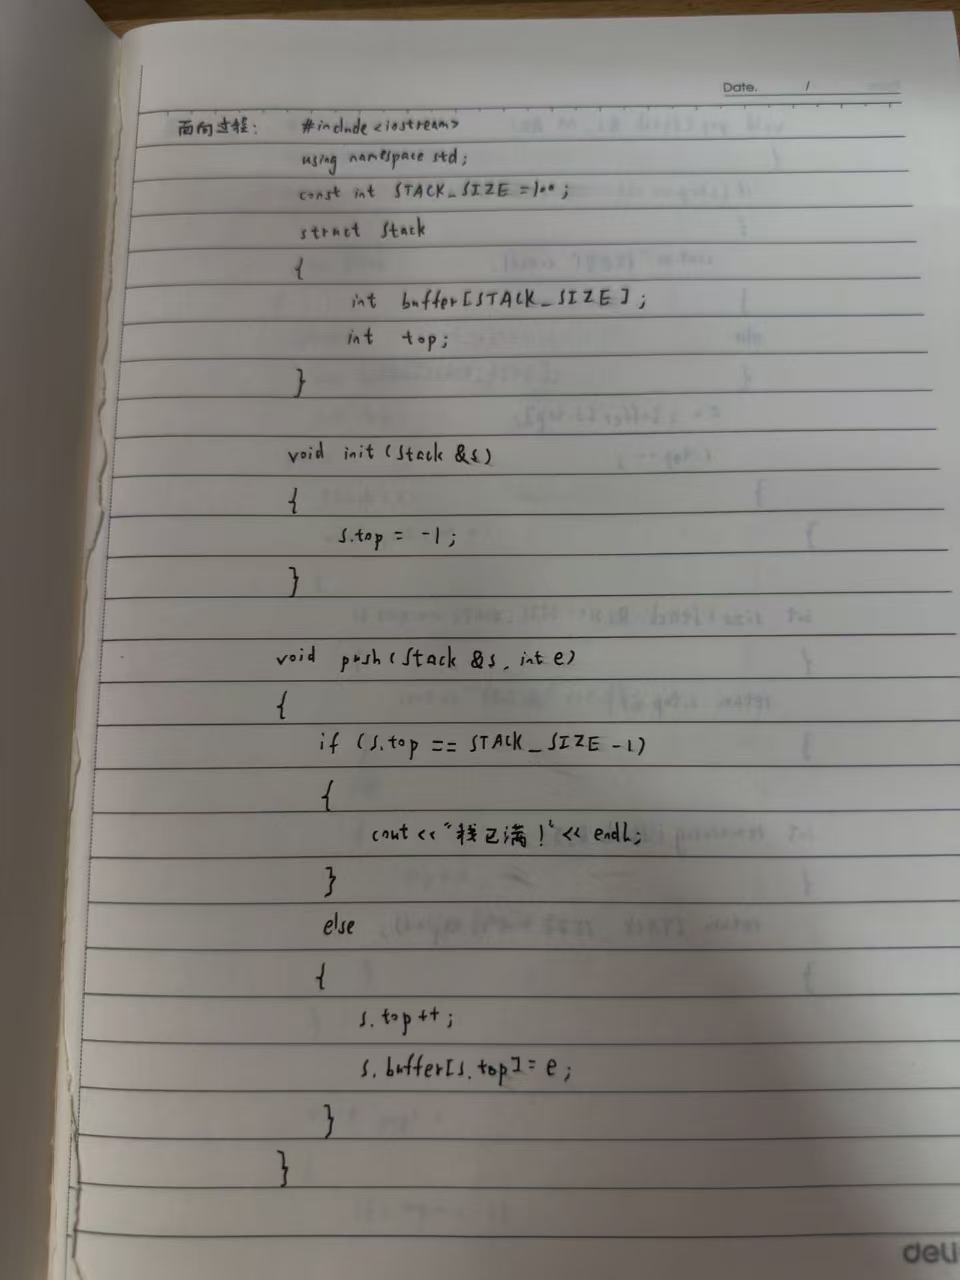 Date. /
面向过程: #include <iostream>
using namespace std;
const int STACK_SIZE = 100;
struct Stack
{
int buffer[STACK_SIZE];
int top;
}
void init (Stack &s)
{
s.top = -1;
}
void push (Stack &s, int e)
{
if (s.top == STACK_SIZE -1)
{
cout << "栈已满!" << endl;
}
else
{
s.top++;
s.buffer[s.top] = e;
}
}
deli